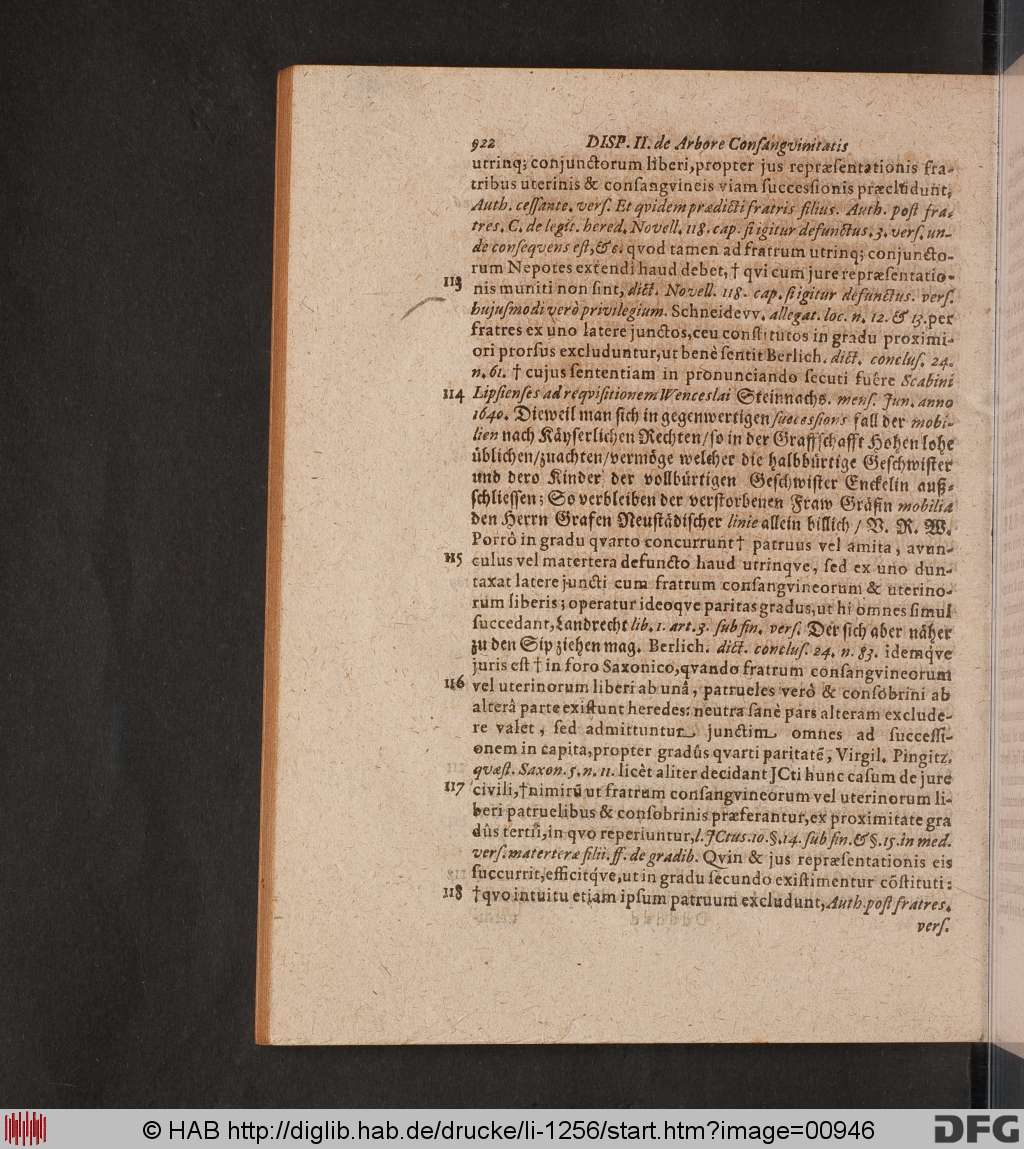 922 DISP. II. de Arbore Consangvinitatis
utrinq; conjunctorum liberi, propter jus repræsentationis fra-
tribus uterinis & consangvineis viam successionis præcludunt,
Auth. cessante. vers. Et qvidem prædicti fratris filius. Auth. post fra-
tres. C. de legit. hered. Novell. 118. cap. si igitur defunctus. 3. vers. un-
de conseqvens est, &c. qvod tamen ad fratrum utrinq; conjuncto-
rum Nepotes extendi haud debet, † qvi cum jure repræsentatio-
113 nis muniti non sint, dict. Novell. 118. cap. si igitur defunctus. vers.
hujusmodi verò privilegium. Schneidevv. allegat. loc. n. 12. & 13. per
fratres ex uno latere junctos, ceu constitutos in gradu proximi-
ori prorsus excluduntur, ut benè sentit Berlich. dict. conclus. 24.
n. 61. † cujus sententiam in pronunciando secuti fuêre Scabini
114 Lipsienses ad reqvisitionem Wenceslai Steinnachs. mens. Jun. anno
1640. Dieweil man sich in gegenwertigen successions fall der mobi-
lien nach Käyserlichen Rechten/ so in der Graffschafft Hohenlohe
üblichen/ zuachten/ vermöge welcher die halbbürtige Geschwister
und dero Kinder der vollbürtigen Geschwister Enckelin auß-
schliessen; So verbleiben der verstorbenen Fraw Gräfin mobilia
den Herrn Grafen Neustädischer linie allein billich / V. R. W.
Porrò in gradu qvarto concurrunt † patruus vel amita, avun-
115 culus vel matertera defuncto haud utrinqve, sed ex uno dun-
taxat latere juncti cum fratrum consangvineorum & uterino-
rum liberis; operatur ideoqve paritas gradus, ut hi omnes simul
succedant, Landrecht lib. 1. art. 3. sub fin. vers. Der sich aber näher
zu den Sip ziehen mag. Berlich. dict. conclus. 24. n. 83. idemq́ve
juris est † in foro Saxonico, qvando fratrum consangvineorum
116 vel uterinorum liberi ab unâ, patrueles verò & consobrini ab
alterâ parte existunt heredes: neutra sanè pars alteram exclude-
re valet, sed admittuntur junctim omnes ad successi-
onem in capita, propter gradûs qvarti paritatē, Virgil. Pingitz.
qvæst. Saxon. 5. n. 11. licèt aliter decidant JCti hunc casum de jure
117 civili, † nimirū ut fratrum consangvineorum vel uterinorum li-
beri patruelibus & consobrinis præferantur, ex proximitate gra
dûs tertii, in qvo reperiuntur, l. JCtus. 10. §. 14. sub fin. & §. 15. in med.
vers. materteræ filii. ff. de gradib. Qvin & jus repræsentationis eis
succurrit, efficitq́ve, ut in gradu secundo existimentur cōstituti:
118 † qvo intuitu etiam ipsum patruum excludunt, Auth. post fratres.
vers.
© HAB http://diglib.hab.de/drucke/li-1256/start.htm?image=00946
DFG